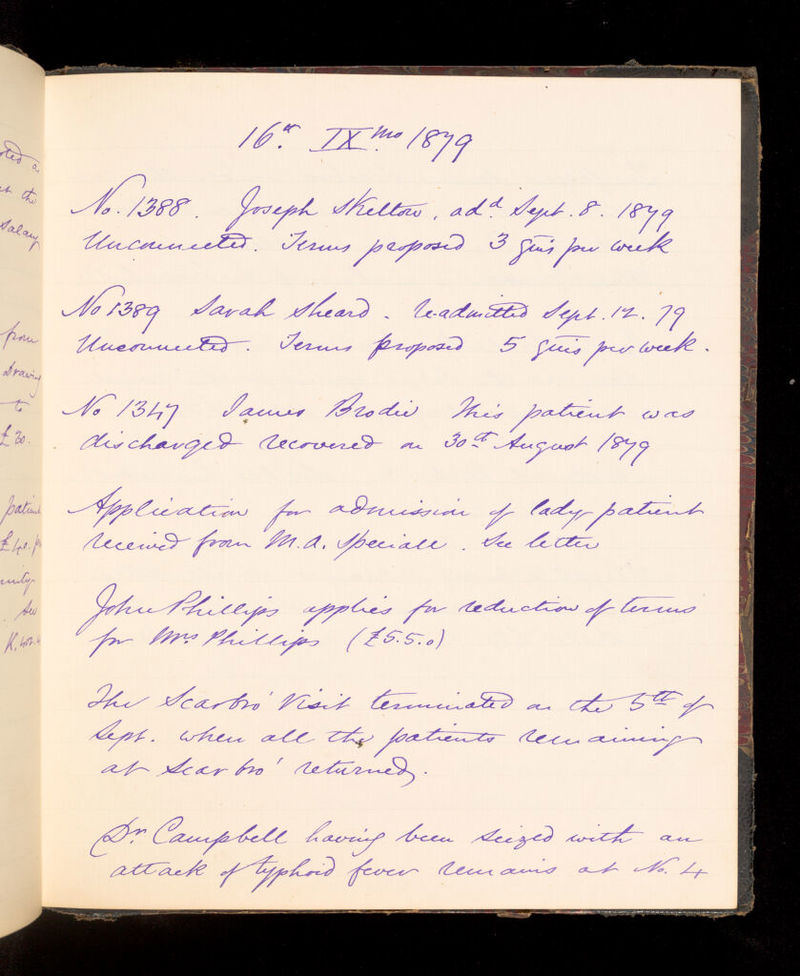 16th IXmo 1879
No. 1388. Joseph Skelton, add. Sept. 8. 1879
Unconnected. Terms proposed 3 gns per week
No 1389 Sarah Sheard. Readmitted Sept. 12. 79
Unconnected. Terms proposed 5 gns per week.
No 1347 James Brodie This patient was
discharged recovered on 30th August 1879
Application for admission of lady patient
received from M.A. Speciale. See letter
John Phillips applies for reduction of terms
for Mrs Phillips (£5.5.0)
The Scarbro' Visit terminated on the 5th of
Sept. when all the patients remaining
at Scarbro' returned.
Dr Campbell having been seized with an
attack of typhoid fever remains at No. 4
the
salary
from
Drawing
to
£20.